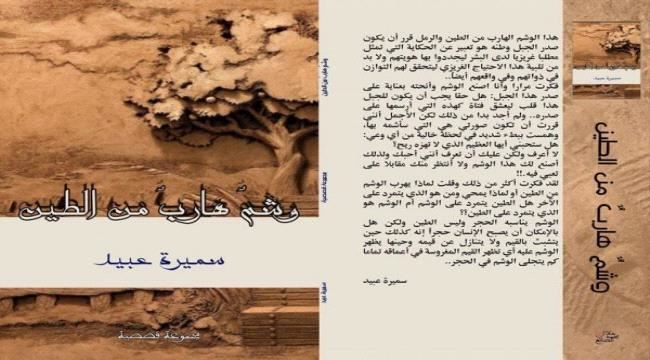 وشمٌ هاربٌ من الطين
سميرة عبيد
مجموعة قصصية
هذا الوشم الهارب من الطين والرمل قرر أن يكون
صدر الجبل وطنه هو تعبير عن الحكاية التي تمثل
مطلبا غريزيا لدى البشر ليحددوا بها هويتهم ولا بد
من تلبية هذا الاحتياج الغريزي ليتحقق لهم التوازن
في ذواتهم وفي واقعهم أيضاً..
فكرت مراراً وأنا اصنع الوشم وأنحته بعناية على
صدر هذا الجبل: هل حقا يجب أن يكون للجبل
هذا قلب ليعشق فتاة كهذه التي أرسمها على
صدره.. ولم أجد بدا من ذلك لكن الأجمل أنني
قررت أن تكون صورتي هي التي سأشمه بها،
وهمست ببطء شديد في لحظة خالية من أي وعي:
هل ستحبني أيها العظيم الذي لا تهزه ريح؟
لا أعرف ولكن عليك أن تعرف أنني أحبك ولذلك
أصنع لك هذا الوشم ولا أنتظر منك مقابلا على
تعبي فيه.!!
لقد فكرت أكثر من ذلك وقلت لماذا يهرب الوشم
من الطين أو لماذا يمحي ومن هو الذي يتمرد على
الآخر هل الطين يتمرد على الوشم أم الوشم هو
الذي يتمرد على الطين؟؟
الوشم يناسبه الحجر وليس الطين ولكن هل
بالإمكان أن يصبح الإنسان حجراً إنه كذلك حين
يتشبث بالقيم ولا يتنازل عن قيمه وحينها يظهر
الوشم عليه أي تظهر القيم المغروسة في أعماقه تماما
كم يتجلى الوشم في الحجر..
سميرة عبيد
سميرة عبيد
وشمٌ هاربٌ من الطين